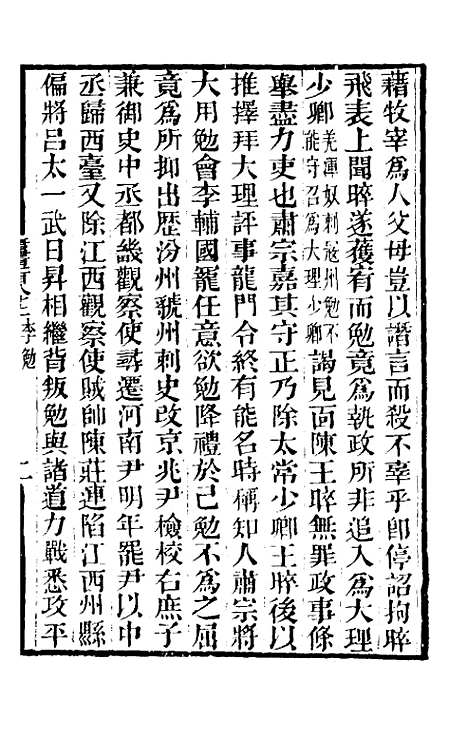 藉牧宰爲人父母豈以譖言而殺不辜乎卽停詔拘晬
飛表上聞晬遂獲宥而勉竟爲執政所非追入爲大理
少卿羌渾奴刺寇州勉不能守召爲大理少卿謁見面陳王晬無罪政事條
舉盡力吏也肅宗嘉其守正乃除太常少卿王晬後以
推擇拜大理評事龍門令終有能名時稱知人肅宗將
大用勉會李輔國寵任意欲勉降禮於己勉不爲之屈
竟爲所抑出歴汾州虢州刺史改京兆尹檢校右庶子
兼御史中丞都畿觀察使尋遷河南尹明年罷尹以中
丞歸西臺又除江西觀察使賊帥陳莊連陷江西州縣
偏將呂太一武日昇相繼背叛勉與諸道力戰悉攻平
李勉
二